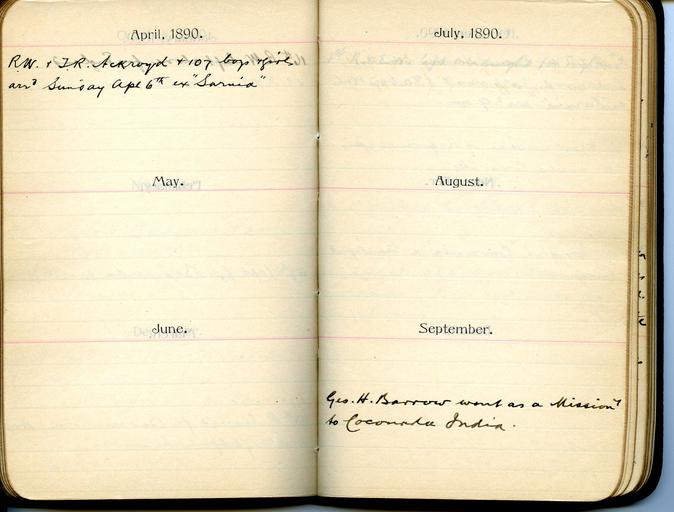 April, 1890.
R.W. & J.R. Ackroyd & 107 boys & girls
arrd Sunday Apl 6th ex "Sarnia"
May.
June.
July, 1890.
August.
September.
Geo. H. Barrow went as a Missiony
to Coconada India.